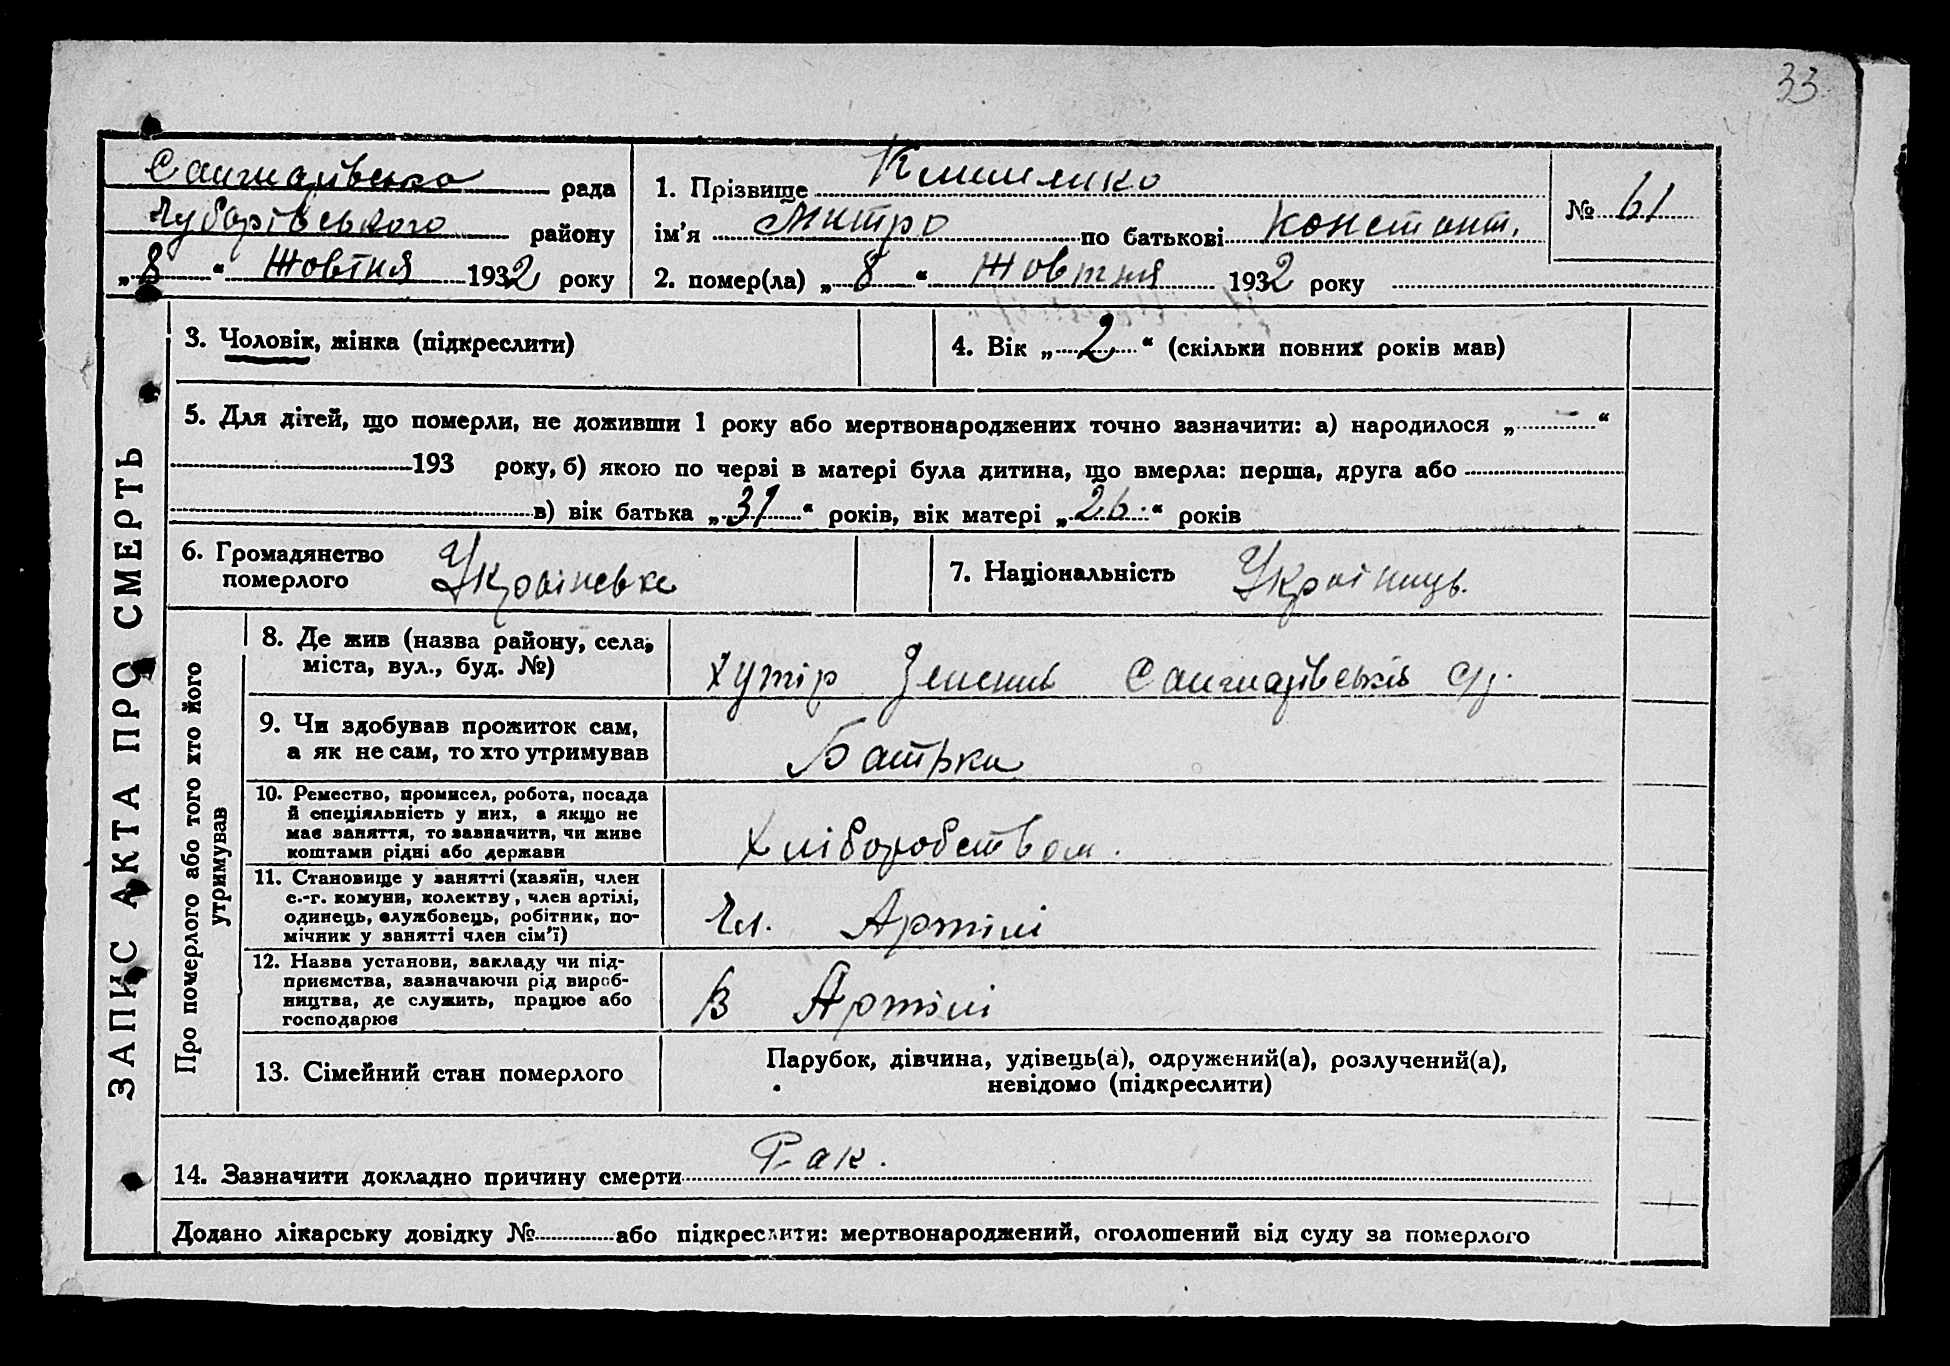 33
рада
Чубарівського району
„8“ Жовтня 1932 року
1. Прізвище
ім’я Митро по батькові Констант.
2. помер(ла) „8“ Жовтня 1932 року
№ 61
3. Чоловік, жінка (підкреслити)
4. Вік „2“ (скільки повних років мав)
5. Для дітей, що померли, не доживши 1 року або мертвонароджених точно зазначити: а) народилося „ — “
193 року, б) якою по черзі в матері була дитина, що вмерла: перша, друга або
в) вік батька „31“ років, вік матері „26.“ років
6. Громадянство
померлого
Українське
7. Національність Украінець.
ЗАПИС АКТА ПРО СМЕРТЬ
Про померлого або того хто його
утримував
8. Де жив (назва району, села,
міста, вул., буд. №)
хутір
9. Чи здобував прожиток сам,
а як не сам, то хто утримував
Батьки
10. Ремество, промисел, робота, посада
й спеціяльність у них, а якщо не
має заняття, то зазначити, чи живе
коштами рідні або держави
Хліборобством.
11. Становище у занятті (хазяїн, член
с.-г. комуни, колектву, член артілі,
одинець, службовець, робітник, по-
мічник у занятті член сім’ї)
Чл. Артілі
12. Назва установи, закладу чи під-
приємства, зазначаючи рід вироб-
ництва, де служить, працює або
господарює
В Артілі
13. Сімейний стан померлого
Парубок, дівчина, удівець(а), одружений(а), розлучений(а),
невідомо (підкреслити)
14. Зазначити докладно причину смерти Рак.
Додано лікарську довідку № або підкреслити: мертвонароджений, оголошений від суду за померлого